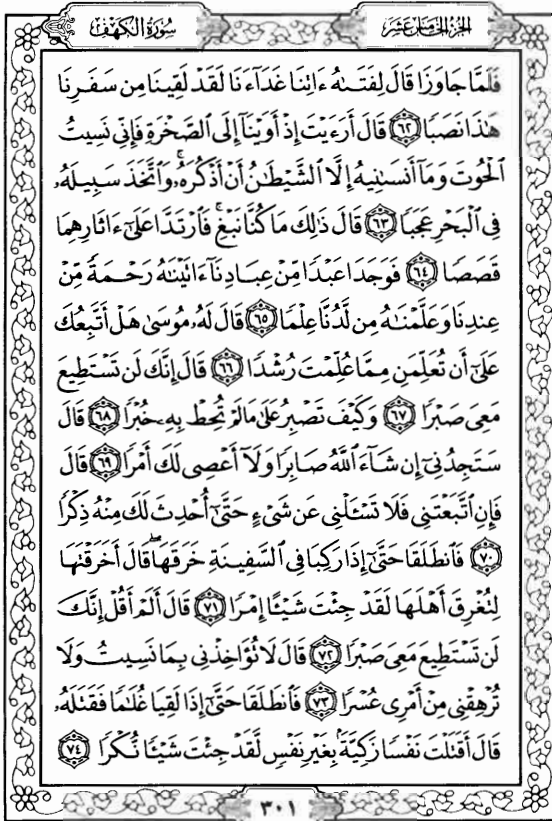 الجزء الخامس عشر
سورة الكهف
فَلَمَّا جَاوَزَا قَالَ لِفَتَىٰهُ ءَاتِنَا غَدَآءَنَا لَقَدْ لَقِينَا مِن سَفَرِنَا
هَٰذَا نَصَبًا ﴿٦٢﴾ قَالَ أَرَءَيْتَ إِذْ أَوَيْنَآ إِلَى ٱلصَّخْرَةِ فَإِنِّى نَسِيتُ
ٱلْحُوتَ وَمَآ أَنسَىٰنِيهُ إِلَّا ٱلشَّيْطَٰنُ أَنْ أَذْكُرَهُۥ ۚ وَٱتَّخَذَ سَبِيلَهُۥ
فِى ٱلْبَحْرِ عَجَبًا ﴿٦٣﴾ قَالَ ذَٰلِكَ مَا كُنَّا نَبْغِ ۚ فَٱرْتَدَّا عَلَىٰٓ ءَاثَارِهِمَا
قَصَصًا ﴿٦٤﴾ فَوَجَدَا عَبْدًا مِّنْ عِبَادِنَآ ءَاتَيْنَٰهُ رَحْمَةً مِّنْ
عِندِنَا وَعَلَّمْنَٰهُ مِن لَّدُنَّا عِلْمًا ﴿٦٥﴾ قَالَ لَهُۥ مُوسَىٰ هَلْ أَتَّبِعُكَ
عَلَىٰٓ أَن تُعَلِّمَنِ مِمَّا عُلِّمْتَ رُشْدًا ﴿٦٦﴾ قَالَ إِنَّكَ لَن تَسْتَطِيعَ
مَعِىَ صَبْرًا ﴿٦٧﴾ وَكَيْفَ تَصْبِرُ عَلَىٰ مَا لَمْ تُحِطْ بِهِۦ خُبْرًا ﴿٦٨﴾ قَالَ
سَتَجِدُنِىٓ إِن شَآءَ ٱللَّهُ صَابِرًا وَلَآ أَعْصِى لَكَ أَمْرًا ﴿٦٩﴾ قَالَ
فَإِنِ ٱتَّبَعْتَنِى فَلَا تَسْـَٔلْنِى عَن شَىْءٍ حَتَّىٰٓ أُحْدِثَ لَكَ مِنْهُ ذِكْرًا
﴿٧٠﴾ فَٱنطَلَقَا حَتَّىٰٓ إِذَا رَكِبَا فِى ٱلسَّفِينَةِ خَرَقَهَا ۖ قَالَ أَخَرَقْتَهَا
لِتُغْرِقَ أَهْلَهَا لَقَدْ جِئْتَ شَيْـًٔا إِمْرًا ﴿٧١﴾ قَالَ أَلَمْ أَقُلْ إِنَّكَ
لَن تَسْتَطِيعَ مَعِىَ صَبْرًا ﴿٧٢﴾ قَالَ لَا تُؤَاخِذْنِى بِمَا نَسِيتُ وَلَا
تُرْهِقْنِى مِنْ أَمْرِى عُسْرًا ﴿٧٣﴾ فَٱنطَلَقَا حَتَّىٰٓ إِذَا لَقِيَا غُلَٰمًا فَقَتَلَهُۥ
قَالَ أَقَتَلْتَ نَفْسًا زَكِيَّةًۢ بِغَيْرِ نَفْسٍ لَّقَدْ جِئْتَ شَيْـًٔا نُّكْرًا ﴿٧٤﴾
٣٠١